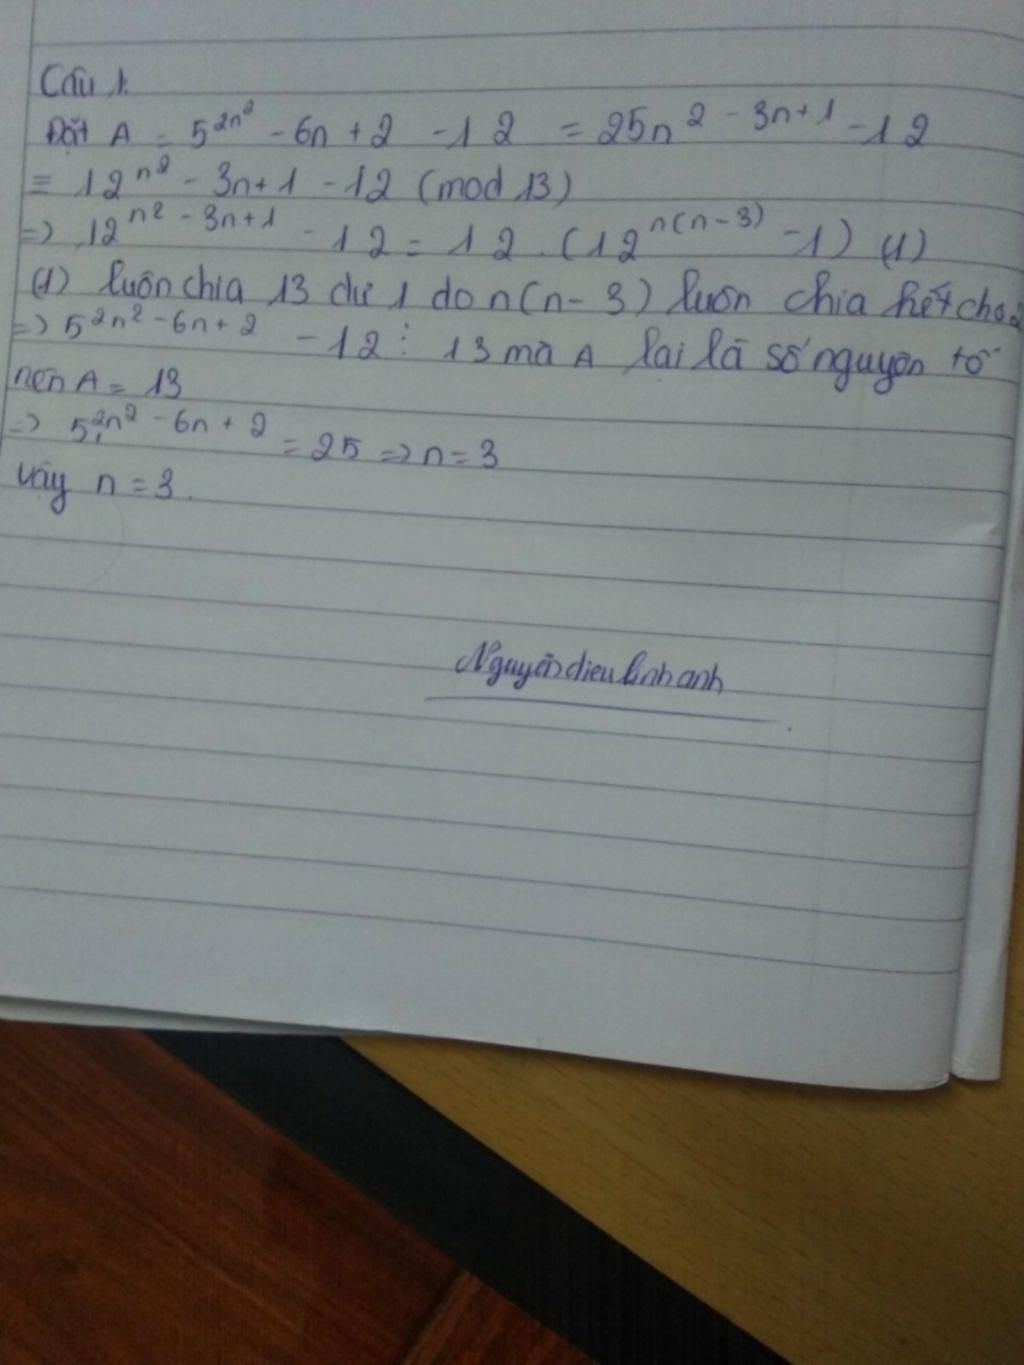 Câu 1.
Đặt A = 5^{2n^2} - 6n + 2 - 12 = 25n^{2 - 3n + 1} - 12
≡ 12^{n^2} - 3n + 1 - 12 (mod 13)
=> 12^{n^2 - 3n + 1} - 12 = 12 . (12^{n(n - 3)} - 1) (1)
(1) luôn chia 13 dư 1 do n(n - 3) luôn chia hết cho 2
=> 5^{2n^2 - 6n + 2} - 12 ⋮ 13 mà A lại là số nguyên tố
nên A = 13
=> 5^{2n^2 - 6n + 2} = 25 => n = 3
Vậy n = 3.
Nguyễn dieu linh anh